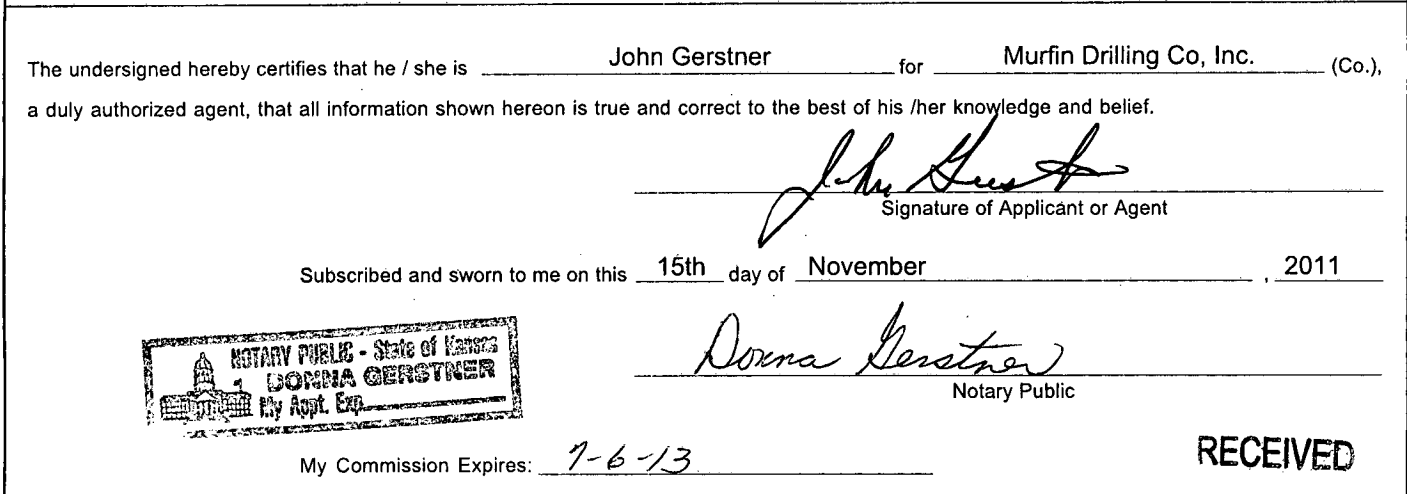 The undersigned hereby certifies that he / she is John Gerstner for Murfin Drilling Co, Inc. (Co.),
a duly authorized agent, that all information shown hereon is true and correct to the best of his /her knowledge and belief.
John Gerstner
Signature of Applicant or Agent
Subscribed and sworn to me on this 15th day of November , 2011
Donna Gerstner
Notary Public
NOTARY PUBLIC - State of Kansas
DONNA GERSTNER
My Appt. Exp.
My Commission Expires: 7-6-13
RECEIVED